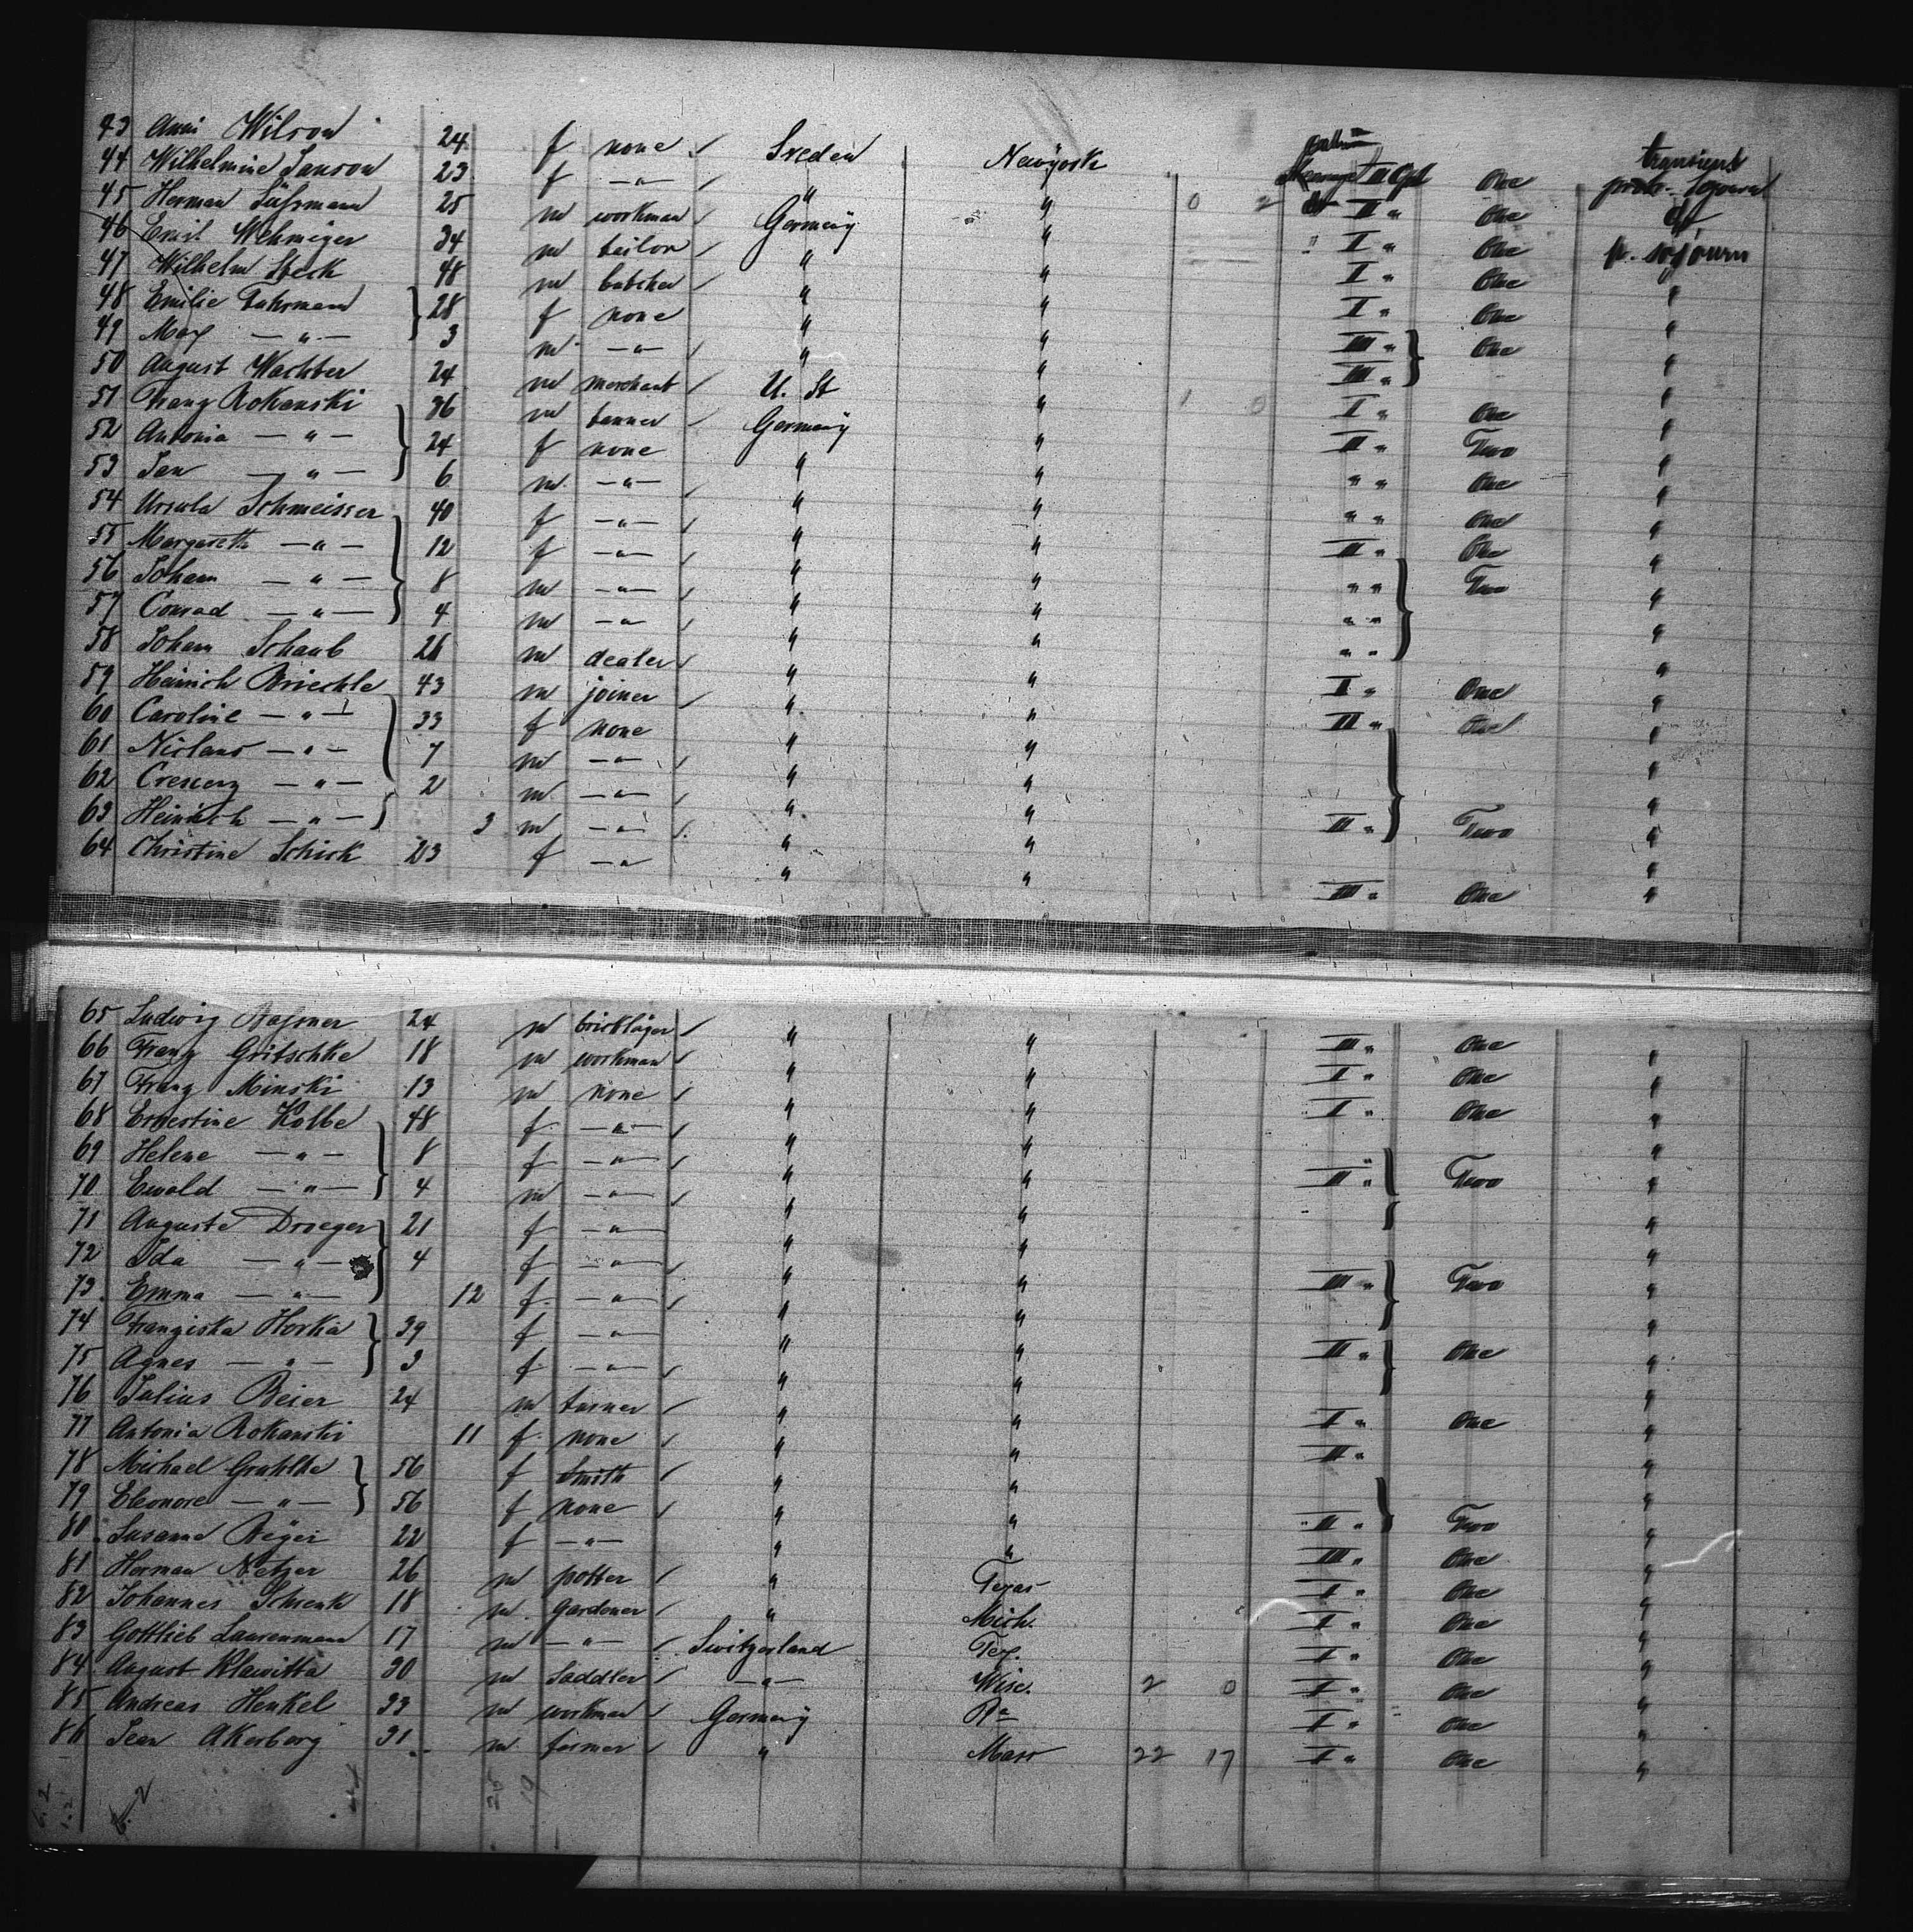 43 Anni Wilson 24 f none Sreden Newÿork III Cpt One transient
44 Wilhelmine Janson 23 f —"— " " 0 2 II " One prob. Sojourn
45 Herman Süssmann 25 m workman Germenÿ " I " One
46 Emil Wehmeÿer 34 m teilor " " I " One p. sojourn
47 Wilhelm Steck 48 m butcher " " I " One "
48 Emilie Fuhrmann 28 f none " " III " One "
49 Max —"— 3 m —"— " " III " "
50 August Wachter 24 m merchant U. St " 1 0 I " One "
51 Franz Rokanski 36 m tanner Germenÿ " II " Two "
52 Antonia —"— 24 f none " " " " One "
53 Jan —"— 6 m —"— " " " " One "
54 Ursula Schmeisser 40 f —"— " " III " One "
55 Margareth —"— 12 f —"— " " " " Two "
56 Johann —"— 8 m —"— " " " " "
57 Conrad —"— 4 m —"— " " " " "
58 Johann Schaub 26 m dealer " " I " One "
59 Heinrich Brieckle 43 m joiner " " III " One "
60 Caroline —"— 33 f none " " "
61 Niclaus —"— 7 m —"— " " "
62 Crescenz —"— 2 m —"— " " III " Two "
63 Heinrich —"— 3 m —"— " " "
64 Christine Schick 23 f —"— " " III " One "
65 Ludwig 24 m bricklager " " III " One "
66 Franz Gritschke 18 m workman " " I " One "
67 Franz Minski 13 m none " " I " One "
68 Ernestine Kolbe 48 f —"— " " "
69 Helene —"— 8 f —"— " " III " Two "
70 Ewald —"— 4 m —"— " " "
71 Auguste Draeger 21 f —"— " " "
72 Ida —"— 4 f —"— " " III " Two "
73 Emma —"— 12 f —"— " " "
74 Franziska Horka 39 f —"— " " III " One "
75 Agnes —"— 3 f —"— " " "
76 Julius Beier 24 m turner " " I " One "
77 Antonia Rokanski 11 f none " " III " "
78 Michael Grahlke 56 f Smith " " "
79 Eleonore —"— 56 f none " " III " Two "
80 Susanna Beÿer 22 f —"— " " III " One "
81 Herman Netzer 26 m potter " Texas I " One "
82 Johannes Schenk 18 m gardener " Mich. I " One "
83 Gottlieb Laurenmann 17 m —"— Switzerland Tex. I " One "
84 August Klawitta 30 m Saddler —"— Wisc. 2 0 I " One "
85 Andreas Henkel 33 m workman Germenÿ Pa I " One "
86 Jean Akerberg 31 m farmer " Mass 22 17 I " One "